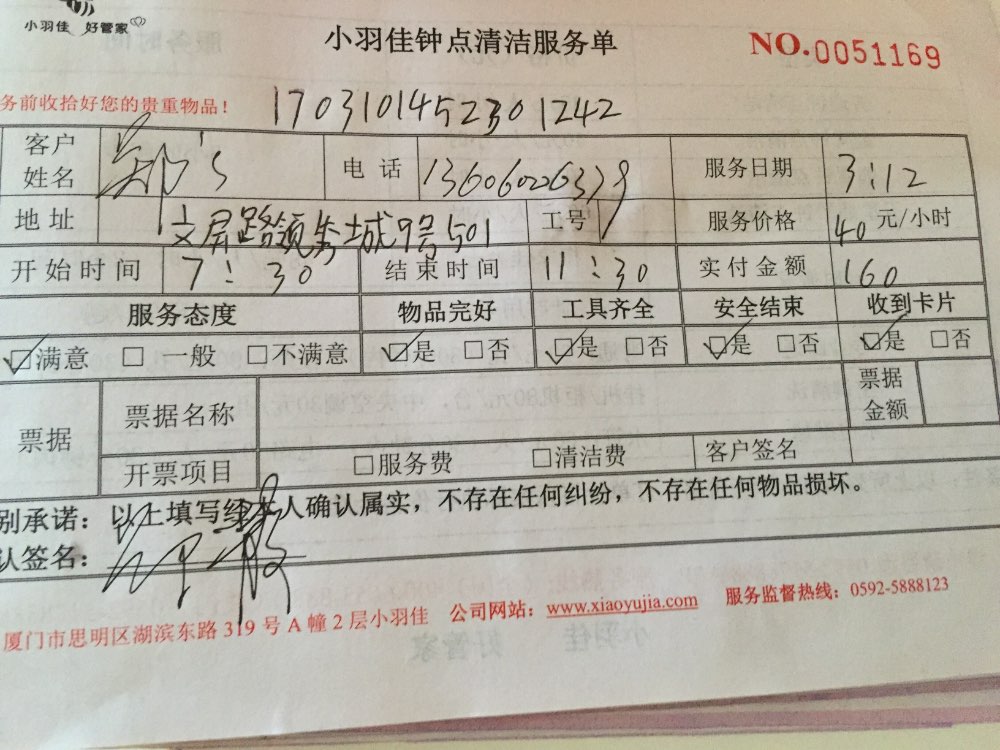 小羽佳 好管家
小羽佳钟点清洁服务单
NO.0051169
务前收拾好您的贵重物品！ 170310145230 1242
客户姓名 郑's 电话 13606026379 服务日期 3:12
地址 文屏路领秀城9号501 工号 服务价格 40元/小时
开始时间 7:30 结束时间 11:30 实付金额 160
服务态度 物品完好 工具齐全 安全结束 收到卡片
☑满意 □一般 □不满意 ☑是 □否 ☑是 □否 ☑是 □否 ☑是 □否
票据 票据名称 票据金额
开票项目 □服务费 □清洁费 客户签名
别承诺：以上填写经本人确认属实，不存在任何纠纷，不存在任何物品损坏。
认签名：
厦门市思明区湖滨东路 319 号 A 幢 2 层小羽佳 公司网站：www.xiaoyujia.com 服务监督热线：0592-5888123